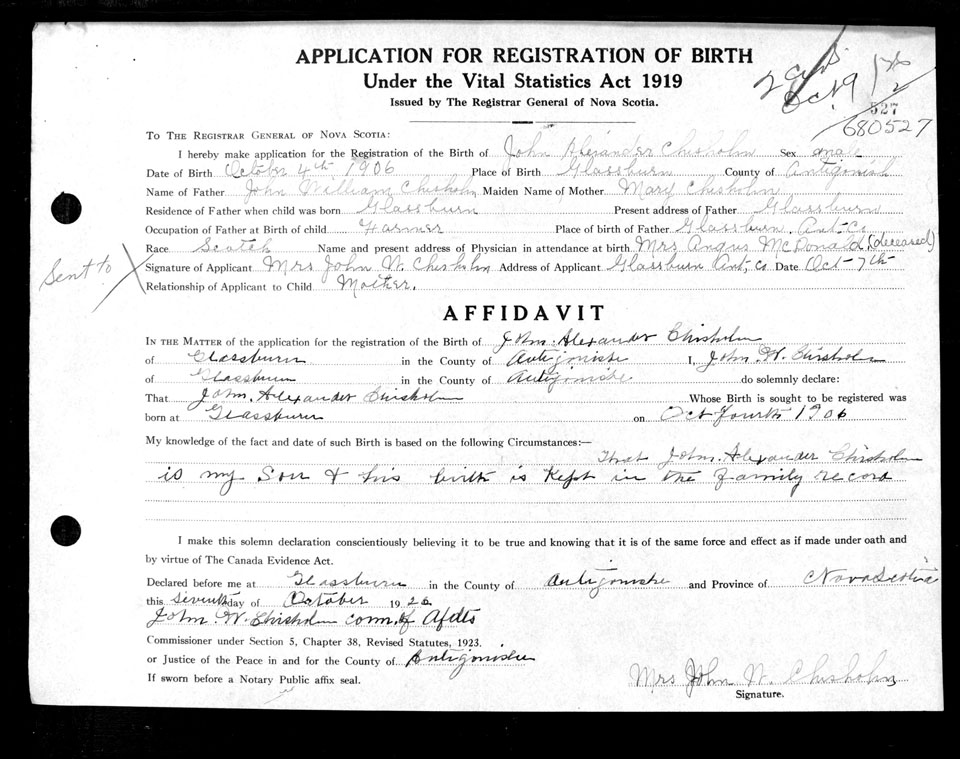 APPLICATION FOR REGISTRATION OF BIRTH
Under the Vital Statistics Act 1919
Issued by The Registrar General of Nova Scotia.
Oct 9
527
680527
TO THE REGISTRAR GENERAL OF NOVA SCOTIA:
I hereby make application for the Registration of the Birth of John Alexander Chisholm Sex male
Date of Birth October 4th 1906 Place of Birth Glassburn County of Antigonish
Name of Father John William Chisholm Maiden Name of Mother Mary Chisholm
Residence of Father when child was born Glassburn Present address of Father Glassburn
Occupation of Father at Birth of child Farmer Place of birth of Father Glassburn, Ant. Co
Race Scotch Name and present address of Physician in attendance at birth Mrs Angus McDonald (deceased)
Sent to
Signature of Applicant Mrs John W. Chisholm Address of Applicant Glassburn Ant, Co Date Oct 7th
Relationship of Applicant to Child Mother.
AFFIDAVIT
IN THE MATTER of the application for the registration of the Birth of John. Alexander Chisholm
of Glassburn in the County of Antigonishe I, John. W. Chisholm
of Glassburn in the County of Antigonishe do solemnly declare:
That John. Alexander Chisholm Whose Birth is sought to be registered was
born at Glassburn on Oct fourth 1906
My knowledge of the fact and date of such Birth is based on the following Circumstances:—
That John. Alexander Chisholm
is my Son & his birth is Kept in the family record
I make this solemn declaration conscientiously believing it to be true and knowing that it is of the same force and effect as if made under oath and
by virtue of The Canada Evidence Act.
Declared before me at Glassburn in the County of Antigonishe and Province of Nova Scotia
this Seventh day of October 192
John. W. Chisholm com. of Afdts
Commissioner under Section 5, Chapter 38, Revised Statutes, 1923.
or Justice of the Peace in and for the County of Antigonishe
If sworn before a Notary Public affix seal.
Mrs John W. Chisholm
Signature.